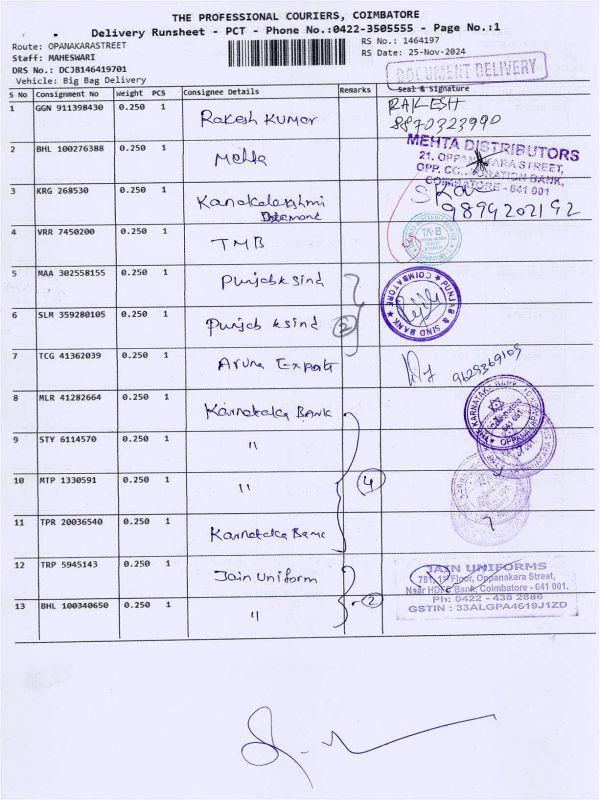 THE PROFESSIONAL COURIERS, COIMBATORE
Delivery Runsheet - PCT - Phone No.:0422-3505555 - Page No.:1
Route: OPANAKARASTREET
RS No.: 1464197
Staff: MAHESWARI
RS Date: 25-Nov-2024
DRS No.: DCJB146419701
Vehicle: Big Bag Delivery
DOCUMENT DELIVERY
S No Consignment No Weight PCS Consignee Details Remarks Seal & Signature
1 GGN 911398430 0.250 1 Rakesh Kumar RAKESH
8870323990
2 BHL 100276388 0.250 1 Mehta MEHTA DISTRIBUTORS
STREET,
BANK,
COIMBATORE - 641 001
3 KRG 268530 0.250 1 Kanakalakshmi
9894202192
4 VRR 7450200 0.250 1 TMB
5 MAA 302558155 0.250 1 Punjab & Sind PUNJAB & SIND BANK COIMBATORE
6 SLM 359280105 0.250 1 Punjab & Sind 2
7 TCG 41362039 0.250 1 Aruna Export
8 MLR 41282664 0.250 1 Karnataka Bank KARNATAKA BANK
9 STY 6114570 0.250 1 "
10 MTP 1330591 0.250 1 " 4
11 TPR 20036540 0.250 1 Karnataka Bank
12 TRP 5945143 0.250 1 Jain Uniform JAIN UNIFORMS
781, 1st Floor, Oppanakara Street,
Near HDFC Bank, Coimbatore - 641 001
13 BHL 100340650 0.250 1 " 2 Ph: 0422 - 438 2886
GSTIN : 33ALGPA4619J1ZD